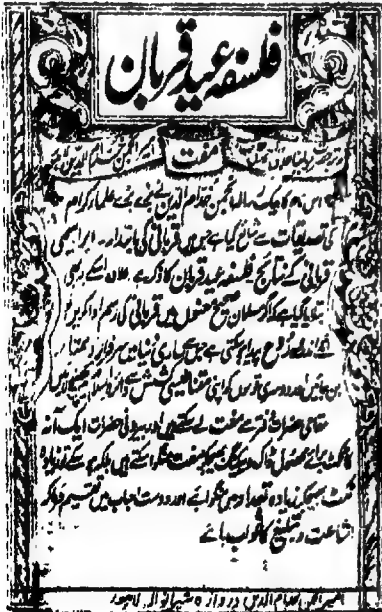 فلسفہ عید قربان
مفت
اس نام کا ایک رسالہ انجمن خدام الدین نے بڑے بڑے علماء کرام
کی تصدیقات سے شائع کیا ہے جس میں قربانی کی ابتداء۔ ابراہیمی
قربانی کے نتائج فلسفہ عید قربان کا ذکر ہے علاوہ اسکے یہ بھی
بتایا گیا ہے کہ اگر مسلمان صحیح معنوں میں قربانی کی رسم ادا کریں
تو روح پیدا ہو سکتی ہے جس سے ساری دنیا میں سرفراز و ممتاز
بن جائیں اور دوسری قوموں کو اپنی مقناطیسی کشش سے دائرہ اسلام میں کھینچ لائیں
مقامی حضرات دفتر سے مفت لے سکتے ہیں اور بیرونی حضرات ایک آنہ
کا ٹکٹ برائے محصول ڈاک و پیکنگ بھیجکر مفت منگوا سکتے ہیں بلکہ ہو سکے تو زیادہ
ٹکٹ بھیجکر زیادہ تعداد میں منگوائیے اور دوست احباب میں تقسیم فرما کر
اشاعت و تبلیغ کا ثواب پائیے
امیر انجمن خدام الدین دروازہ شیرانوالہ لاہور